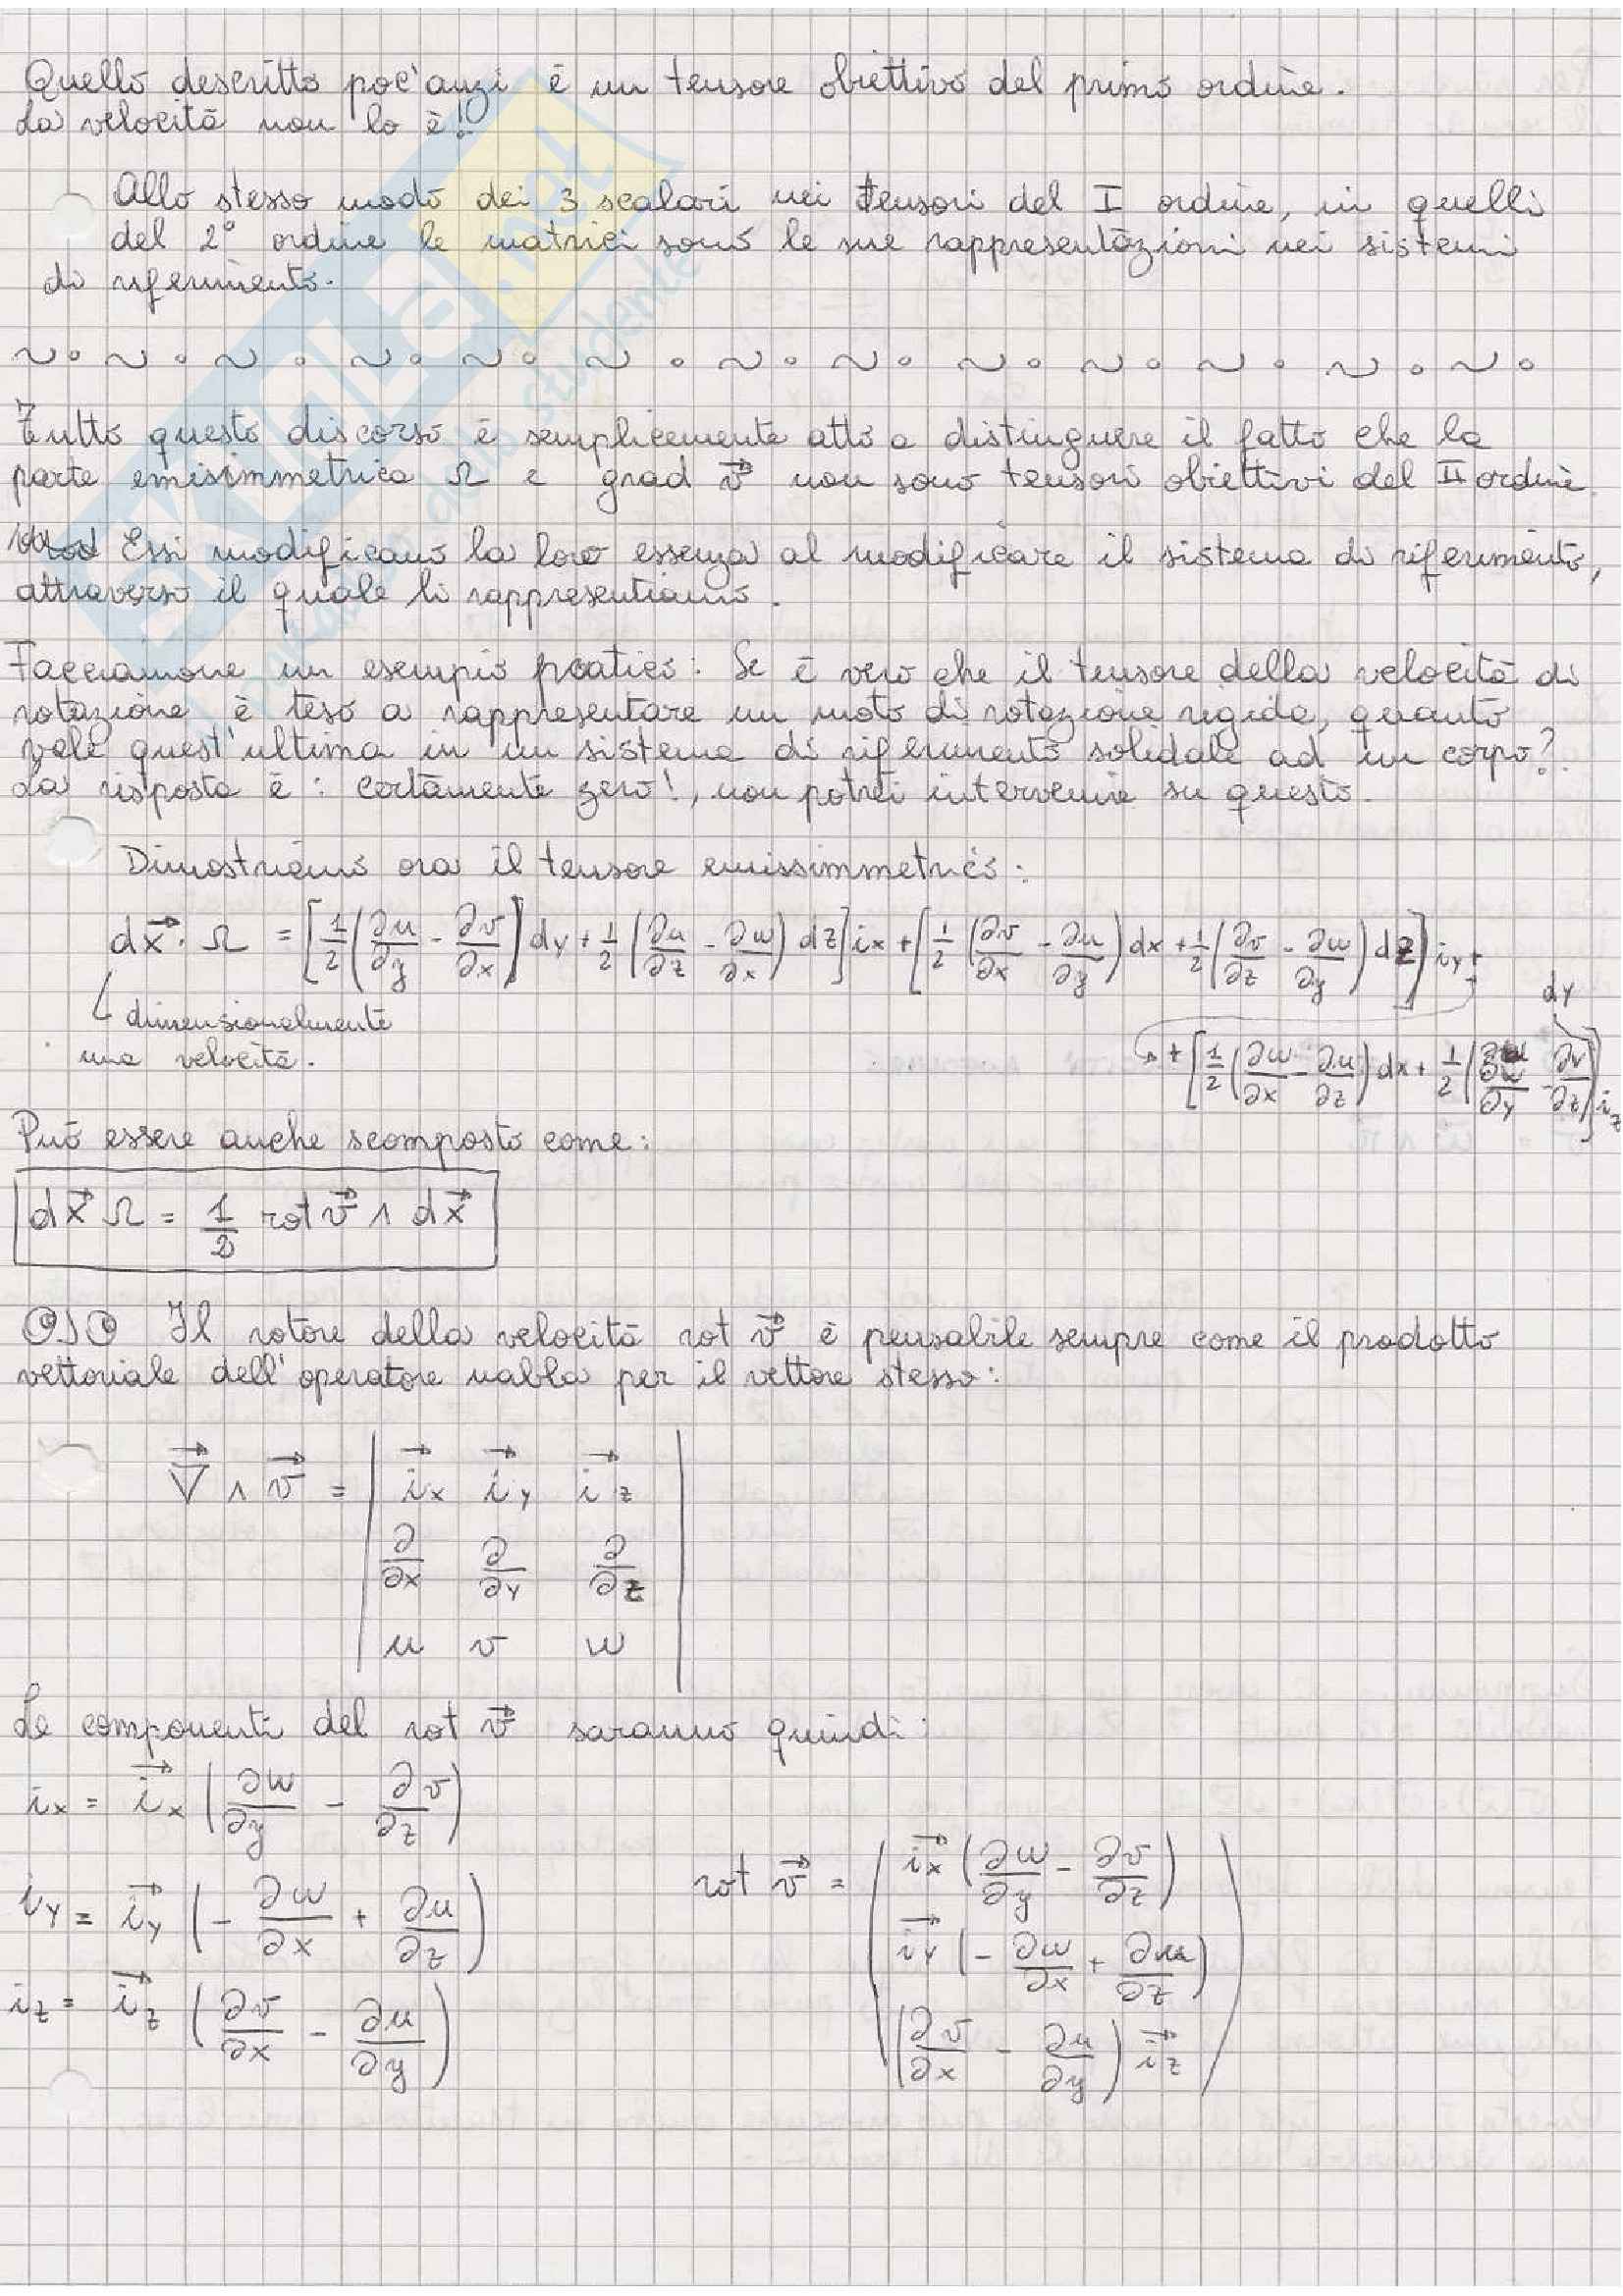 Quello descritto poc'anzi è un tensore obiettivo del primo ordine.
La velocità non lo è!
Allo stesso modo dei 3 scalari nei tensori del I ordine, in quelli
del 2° ordine le matrici sono le sue rappresentazioni nei sistemi
di riferimento.
~ ∘ ~ ∘ ~ ∘ ~ ∘ ~ ∘ ~ ∘ ~ ∘ ~ ∘ ~ ∘ ~ ∘ ~ ∘ ~ ∘ ~ ∘
Tutto questo discorso è semplicemente atto a distinguere il fatto che la
parte emisimmetrica Ω e grad v⃗ non sono tensori obiettivi del II ordine.
Essi modificano la loro essenza al modificare il sistema di riferimento,
attraverso il quale li rappresentiamo.
Facciamone un esempio pratico: Se è vero che il tensore della velocità di
rotazione è teso a rappresentare un moto di rotazione rigida, quanto
vale quest'ultima in un sistema di riferimento solidale ad un corpo?
La risposta è: certamente zero!, non potrei intervenire su questo.
Dimostriamo ora il tensore emissimmetrico:
dx⃗ · Ω = [1/2 (∂u/∂y - ∂v/∂x) dy + 1/2 (∂u/∂z - ∂w/∂x) dz] ix + [1/2 (∂v/∂x - ∂u/∂y) dx + 1/2 (∂v/∂z - ∂w/∂y) dz] iy +
dimensionalmente
una velocità.
+ [1/2 (∂w/∂x - ∂u/∂z) dx + 1/2 (∂w/∂y - ∂v/∂z) dy] iz
Può essere anche scomposto come:
dx⃗ Ω = 1/2 rot v⃗ ∧ dx⃗
Il rotore della velocità rot v⃗ è pensabile sempre come il prodotto
vettoriale dell'operatore nabla per il vettore stesso:
∇⃗ ∧ v⃗ = | i⃗x i⃗y i⃗z
∂/∂x ∂/∂y ∂/∂z
u v w |
Le componenti del rot v⃗ saranno quindi:
ix = i⃗x (∂w/∂y - ∂v/∂z)
iy = i⃗y (- ∂w/∂x + ∂u/∂z)
iz = i⃗z (∂v/∂x - ∂u/∂y)
rot v⃗ = ( i⃗x (∂w/∂y - ∂v/∂z)
i⃗y (- ∂w/∂x + ∂u/∂z)
(∂v/∂x - ∂u/∂y) i⃗z )